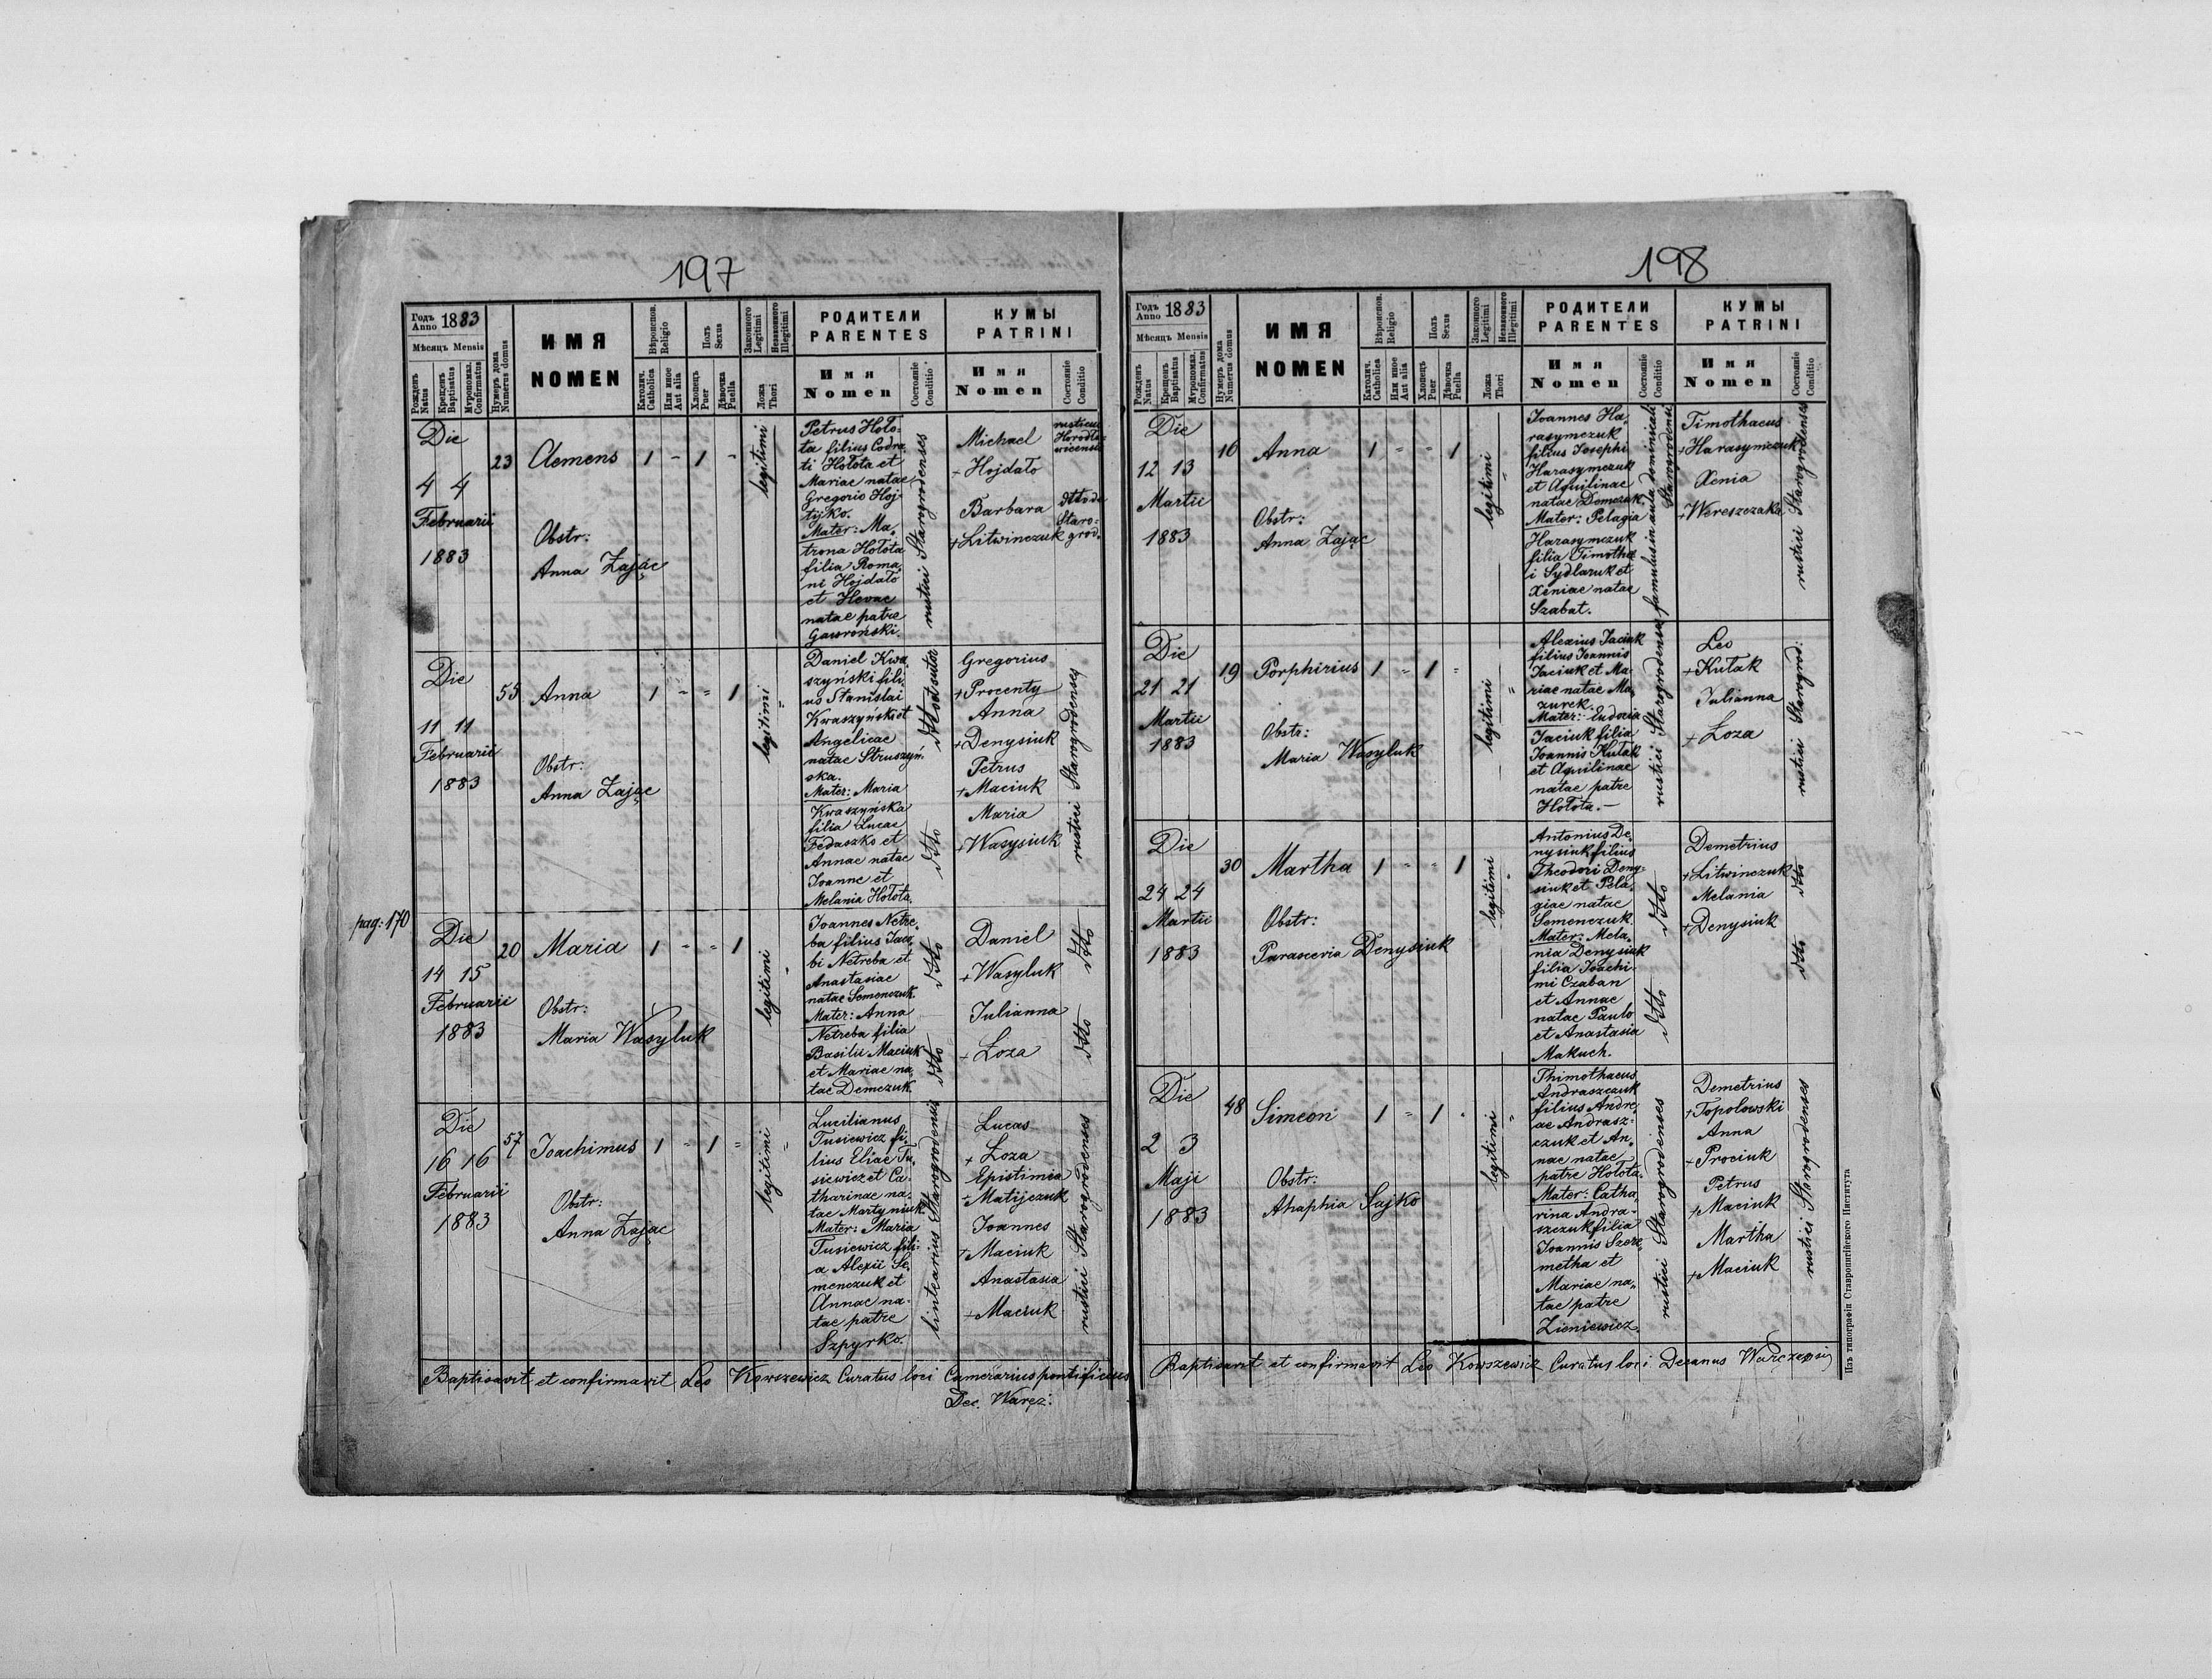 197
Годъ Anno 1883
Мѣсяцъ Mensis
Рожденъ Natus
Крещенъ Baptisatus
Мѵропомаз. Confirmatus
Нумеръ дома Numerus domus
ИМЯ
NOMEN
Вѣроиспов. Religio
Католич. Catholica
Или иное Aut alia
Полъ Sexus
Хлопецъ Puer
Дѣвочка Puella
Законного Legitimi
Незаконного Illegitimi
Ложа Thori
РОДИТЕЛИ
PARENTES
Имя
Nomen
Состояніе Conditio
КУМЫ
PATRINI
Имя
Nomen
Состояніе Conditio
Die
4 4
Februarii
1883
23
Clemens
Obstr:
Anna Zając
1 - 1 -
legitimi
Petrus Hoło-
ta filius Codra-
ti Hołota et
Mariae natae
Gregorio Hoj-
tyjko.
Mater: Ma-
trona Hołota
filia Roma-
ni Hojdało
et Hevae
natae patre
Gawroński.
rustici Starogrodenses
Michael
+ Hojdało
Barbara
+ Litwinczuk
rusticus
Horodło-
wicensis
dtto de
Staro-
grod.
Die
11 11
Februarii
1883
55
Anna
Obstr:
Anna Zając
1 - " 1
legitimi
Daniel Kwa-
szyński fili-
us Stanislai
Kwaszyński et
Angelicae
natae Struszyń-
ska.
Mater: Maria
Kwaszyńska
filia Lucae
Fedaszko et
Annae natae
Joanne et
Melania Hołota.
dtto et sutor
dtto
Gregorius
+ Procenty
Anna
+ Denysiuk
Petrus
+ Maciuk
Maria
+ Wasysiuk
rustici Starogrodenses
pag: 170
Die
14 15
Februarii
1883
20
Maria
Obstr:
Maria Wasyluk
1 - " 1
legitimi
Joannes Netre-
ba filius Jaco-
bi Netreba et
Anastasiae
natae Semenczuk.
Mater: Anna
Netreba filia
Basilii Maciuk
et Mariae na-
tae Demczuk
dtto
dtto
Daniel
+ Wasyluk
Julianna
+ Łoza
dtto
dtto
Die
16 16
Februarii
1883
57
Joachimus
Obstr:
Anna Zając
1 " 1 "
legitimi
Lucilianus
Tusiewicz fi-
lius Eliae Tu-
siewicz et Ca-
tharinae na-
tae Martyniuk
Mater: Maria
Tusiewicz fili-
a Alexii Se-
menczuk et
Annae na-
tae patre
Szpyrko.
lintearius Starogrodensis
Lucas
+ Łoza
Epistimia
+ Matijczuk
Joannes
+ Maciuk
Anastasia
+ Maciuk
rustici Starogrodenses
Baptisavit et confirmavit Leo Kowszewicz Curatus loci Camerarius pontificius
Dec. Waręż:
198
Годъ Anno 1883
Мѣсяцъ Mensis
Рожденъ Natus
Крещенъ Baptisatus
Мѵропомаз. Confirmatus
Нумеръ дома Numerus domus
ИМЯ
NOMEN
Вѣроиспов. Religio
Католич. Catholica
Или иное Aut alia
Полъ Sexus
Хлопецъ Puer
Дѣвочка Puella
Законного Legitimi
Незаконного Illegitimi
Ложа Thori
РОДИТЕЛИ
PARENTES
Имя
Nomen
Состояніе Conditio
КУМЫ
PATRINI
Имя
Nomen
Состояніе Conditio
Die
12 13
Martii
1883
16
Anna
Obstr:
Anna Zając
1 " " 1
legitimi
Joannes Ha-
rasymczuk
filius Josephi
Harasymczuk
et Aquilinae
natae Demczuk.
Mater: Pelagia
Harasymczuk
filia Timothe-
i Sydlaruk et
Xeniae natae
Szabat.
famulus in aula dominicali
Starogrodensi
Timothaeus
+ Harasymczuk
Xenia
+ Wereszczaka
rustici Starogrodenses
Die
21 21
Martii
1883
19
Porphirius
Obstr:
Maria Wasyluk
1 " 1 "
legitimi
Alexius Jaciuk
filius Joannis
Jaciuk et Ma-
riae natae Ma-
zurek.
Mater: Eudocia
Jaciuk filia
Joannis Kułak
et Aquilinae
natae patre
Hołota. —
rustici Starogrodenses
Leo
+ Kułak
Julianna
+ Łoza
rustici Starogrod:
Die
24 24
Martii
1883
30
Martha
Obstr:
Parascevia Denysiuk
1 " " 1
legitimi
Antonius De-
nysiuk filius
Theodori Deny-
siuk et Pela-
giae natae
Semenczuk
Mater: Mela-
nia Denysiuk
filia Joachi-
mi Czaban
et Annae
natae Paulo
et Anastasia
Makuch.
dtto
dtto
Demetrius
+ Litwinczuk
Melania
+ Denysiuk
dtto
dtto
Die
2 3
Maji
1883
48
Simeon
Obstr:
Ahaphia Sajko
1 " 1 "
legitimi
Thimothaeus
Andraszczuk
filius Andre-
ae Andrasz-
czuk et An-
nae natae
patre Hołota.
Mater: Catha-
rina Andra-
szczuk filia
Joannis Szere-
metha et
Mariae na-
tae patre
Zieniewicz.
rustici Starogrodenses
Demetrius
+ Topolowski
Anna
+ Prociuk
Petrus
+ Maciuk
Martha
+ Maciuk
rustici Starogrodenses
Baptisavit et confirmavit Leo Kowszewicz Curatus loci Decanus Waręzensis
Изъ типографіи Ставропигійского Института